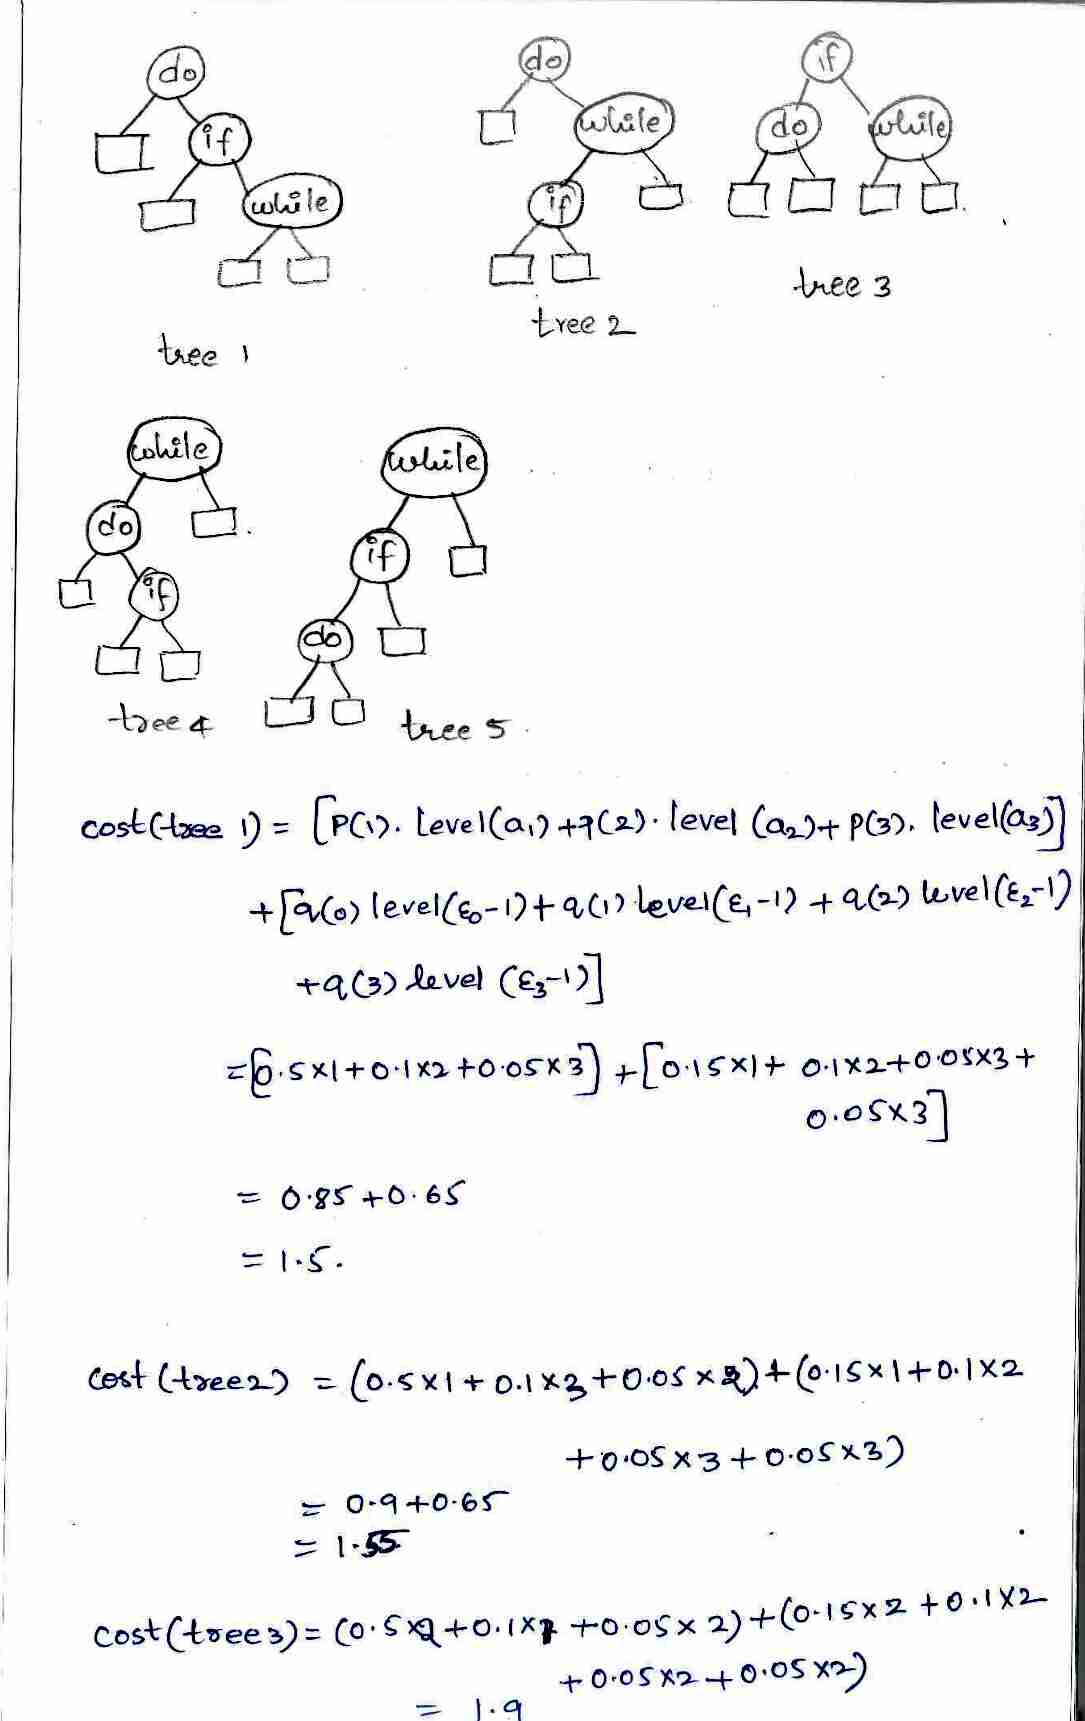 do
if
while
tree 1
do
while
if
tree 2
if
do while
tree 3
while
do
if
tree 4
while
if
do
tree 5
cost(tree 1) = [P(1). Level(a1) + p(2). level (a2) + P(3). level(a3)]
+ [q(0) level(ε0-1) + q(1) level(ε1-1) + q(2) level(ε2-1)
+ q(3) level (ε3-1)]
= [0.5×1 + 0.1×2 + 0.05×3] + [0.15×1 + 0.1×2 + 0.05×3 +
0.05×3]
= 0.85 + 0.65
= 1.5.
cost (tree2) = (0.5×1 + 0.1×3 + 0.05×2) + (0.15×1 + 0.1×2
+ 0.05×3 + 0.05×3)
= 0.9 + 0.65
= 1.55
cost(tree3) = (0.5×2 + 0.1×1 + 0.05×2) + (0.15×2 + 0.1×2
+ 0.05×2 + 0.05×2)
= 1.9